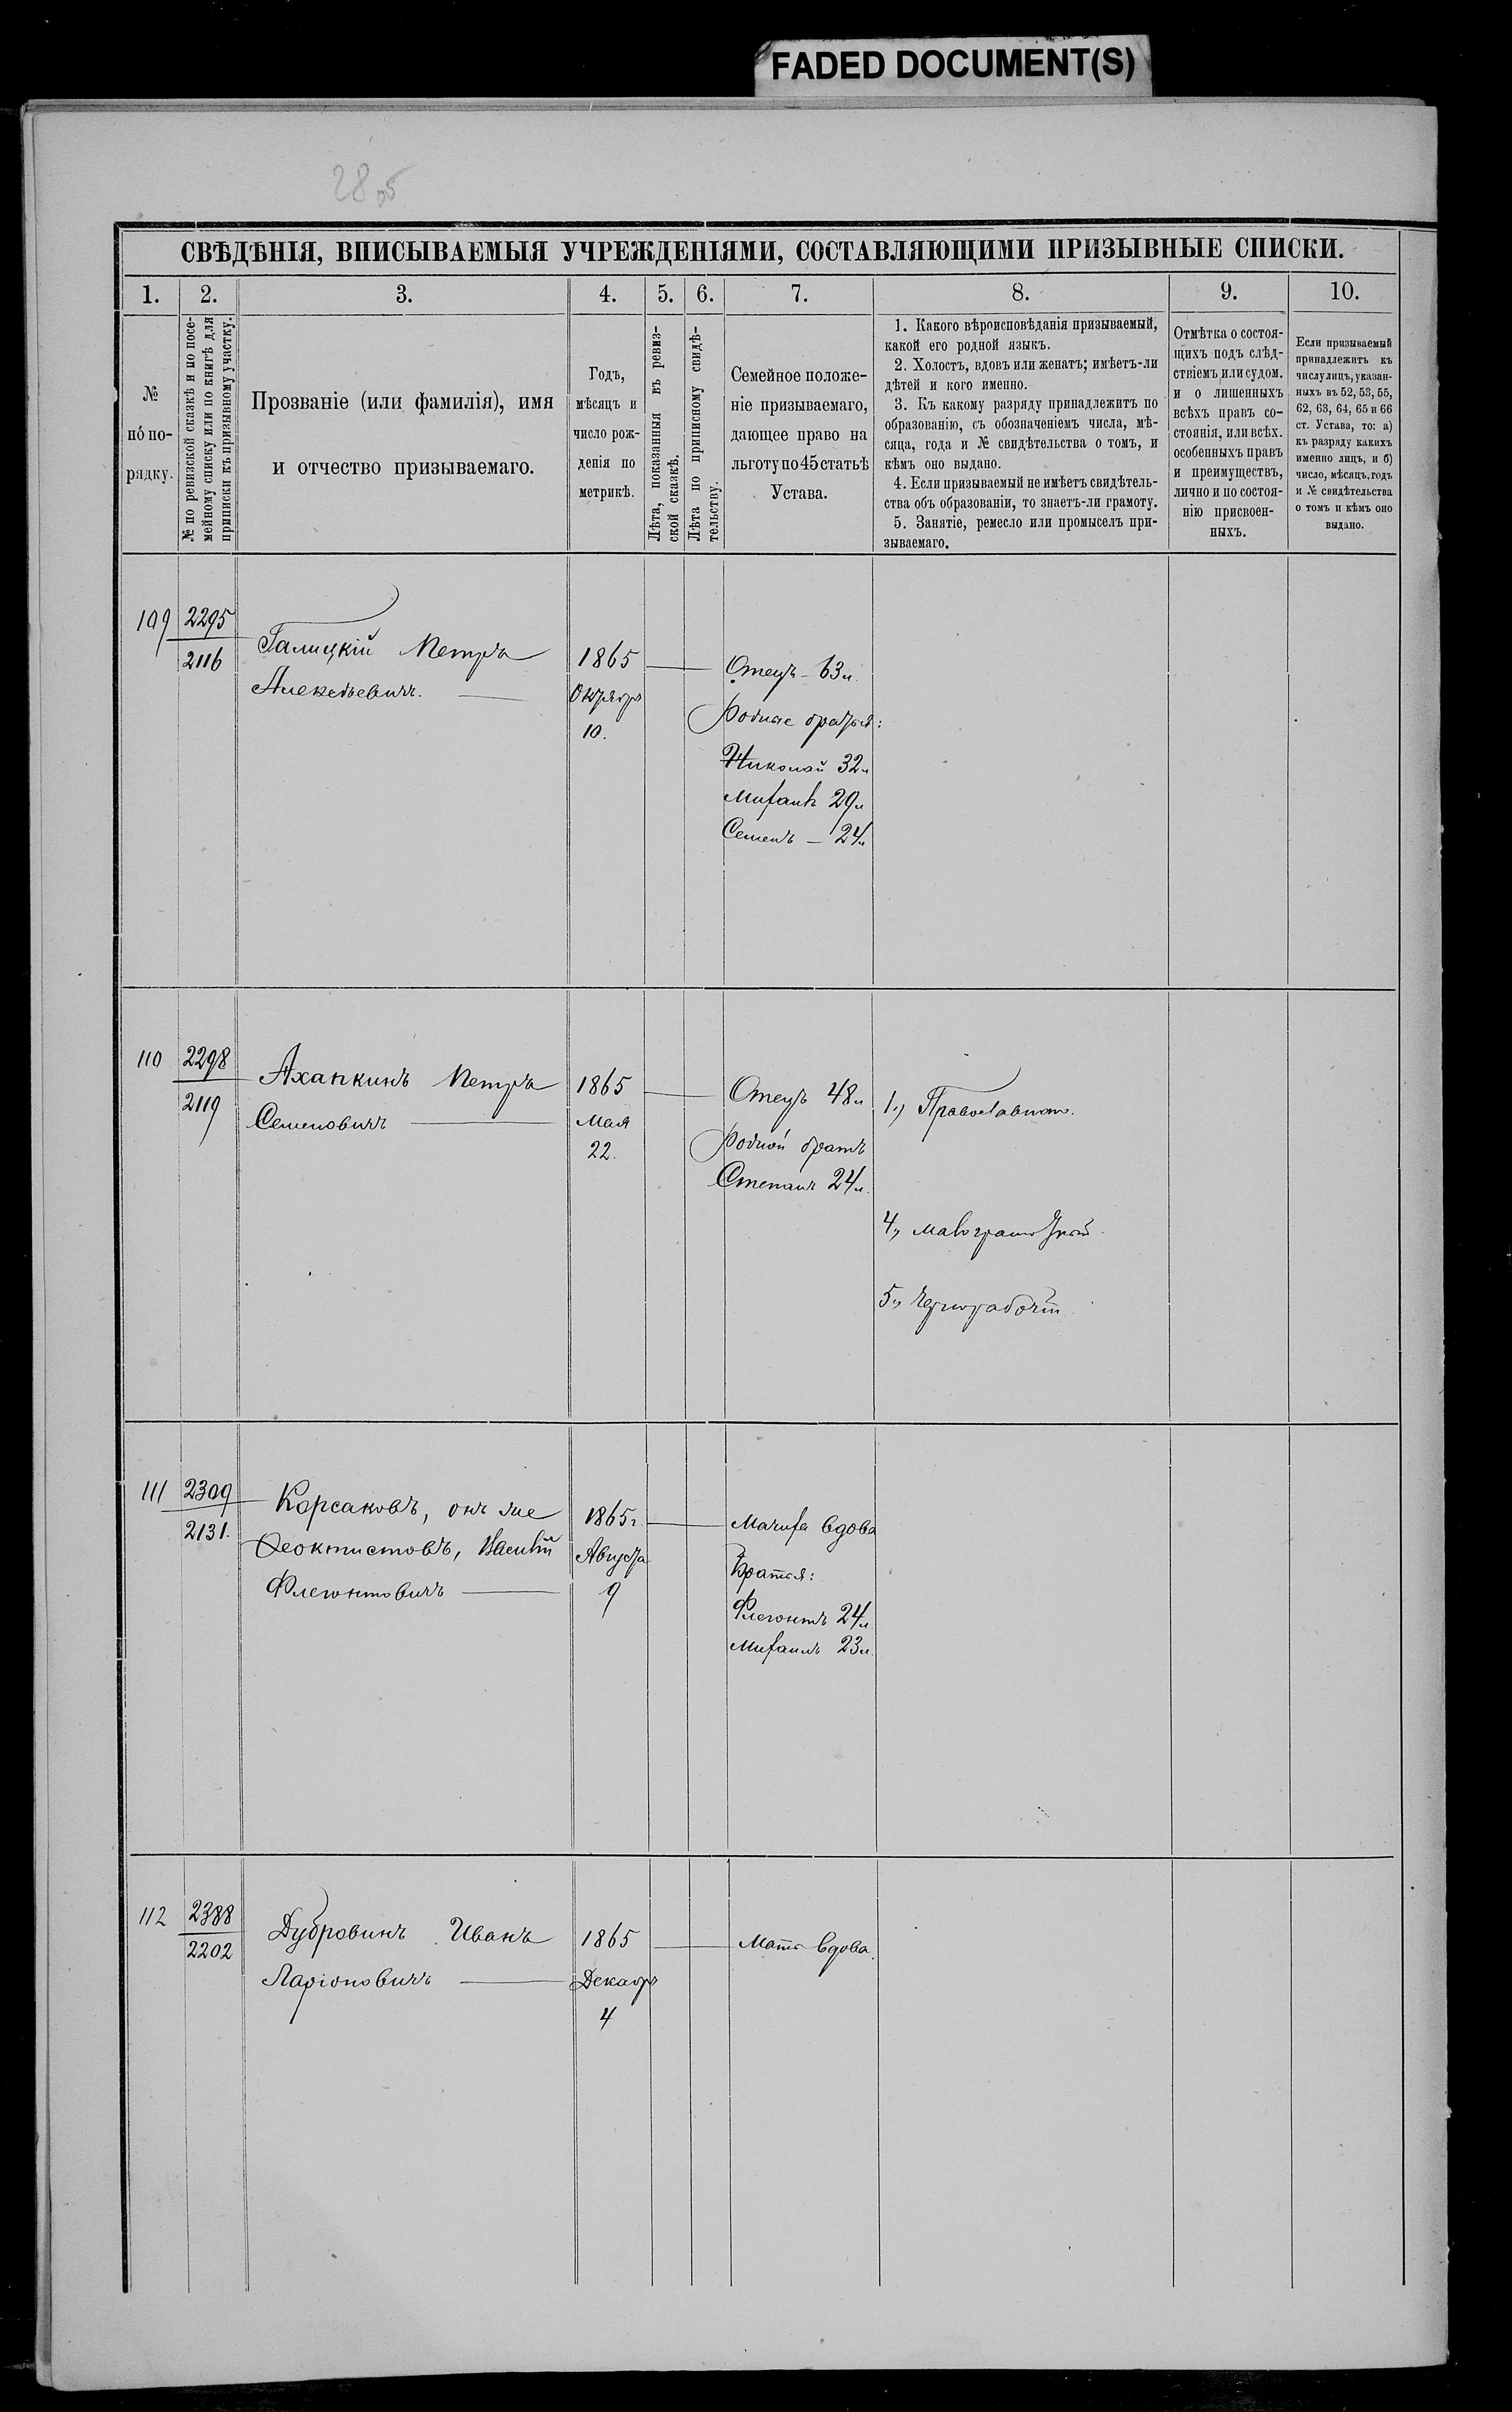 FADED DOCUMENT(S)
СВѢДѢНІЯ, ВПИСЫВАЕМЫЯ УЧРЕЖДЕНІЯМИ, СОСТАВЛЯЮЩИМИ ПРИЗЫВНЫЕ СПИСКИ.
1. 2. 3. 4. 5. 6. 7. 8. 9. 10.
№
по по-
рядку.
№ по ревизской сказкѣ и по посе-
мейному списку или по книгѣ для
приписки къ призывному участку.
Прозваніе (или фамилія), имя
и отчество призываемаго.
Годъ,
мѣсяцъ и
число рож-
денія по
метрикѣ.
Лѣта, показанныя въ ревиз-
ской сказкѣ.
Лѣта по приписному свидѣ-
тельству.
Семейное положе-
ніе призываемаго,
дающее право на
льготу по 45 статьѣ
Устава.
1. Какого вѣроисповѣданія призываемый,
какой его родной языкъ.
2. Холостъ, вдовъ или женатъ; имѣетъ-ли
дѣтей и кого именно.
3. Къ какому разряду принадлежитъ по
образованію, съ обозначеніемъ числа, мѣ-
сяца, года и № свидѣтельства о томъ, и
кѣмъ оно выдано.
4. Если призываемый не имѣетъ свидѣтель-
ства объ образованіи, то знаетъ-ли грамоту.
5. Занятіе, ремесло или промыселъ при-
зываемаго.
Отмѣтка о состоя-
щихъ подъ слѣд-
ствіемъ или судом.
и о лишенныхъ
всѣхъ правъ со-
стоянія, или всѣх.
особенныхъ правъ
и преимуществъ,
лично и по состоя-
нію присвоен-
ныхъ.
Если призываемый
принадлежитъ къ
числу лицъ, указан-
ныхъ въ 52, 53, 55,
62, 63, 64, 65 и 66
ст. Устава, то: а)
къ разряду какихъ
именно лицъ, и б)
число, мѣсяцъ, годъ
и № свидѣтельства
о томъ и кѣмъ оно
выдано.
109
2295
2116
Галицкій Петръ
Алексѣевичъ.
1865
Октября
10.
Отецъ - 63 л.
Родные братья:
Николай 32 л
Михаилъ 29 л
Семенъ — 24 л
110
2298
2119
Ахапкинъ Петръ
Семеновичъ
1865
Мая
22.
Отецъ 48 л
Родной братъ
Степанъ 24 л.
1., Православнаго.
4., малограмотный.
5., Чернорабочій
111
2309
2131.
Корсаковъ, онъ же
Феоктистовъ, Василій
Флегонтовичъ
1865 г.
Августа
9
Мачиха вдова
Братья:
Флегонтъ 24 л.
Михаилъ 23 л.
112
2388
2202
Дубровинъ Иванъ
Ларіоновичъ
1865
Декабря
4
Мать вдова.